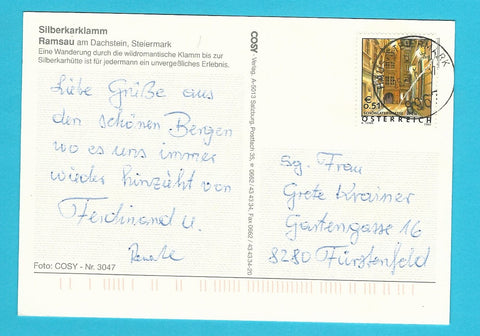 Silberkarklamm
Ramsau am Dachstein, Steiermark
Eine Wanderung durch die wildromantische Klamm bis zur
Silberkarhütte ist für jedermann ein unvergeßliches Erlebnis.
Liebe Grüße aus
den schönen Bergen
wo es uns immer
wieder hinzieht von
Ferdinand u.
Renate
Foto: COSY - Nr. 3047
COSY Verlag, A-5013 Salzburg, Postfach 35, ☎ 0662/43 43 34, Fax 0662/43 43 34-20
€ 0.51
ÖSTERREICH
Sg. Frau
Grete Krainer
Gartengasse 16
8280 Fürstenfeld